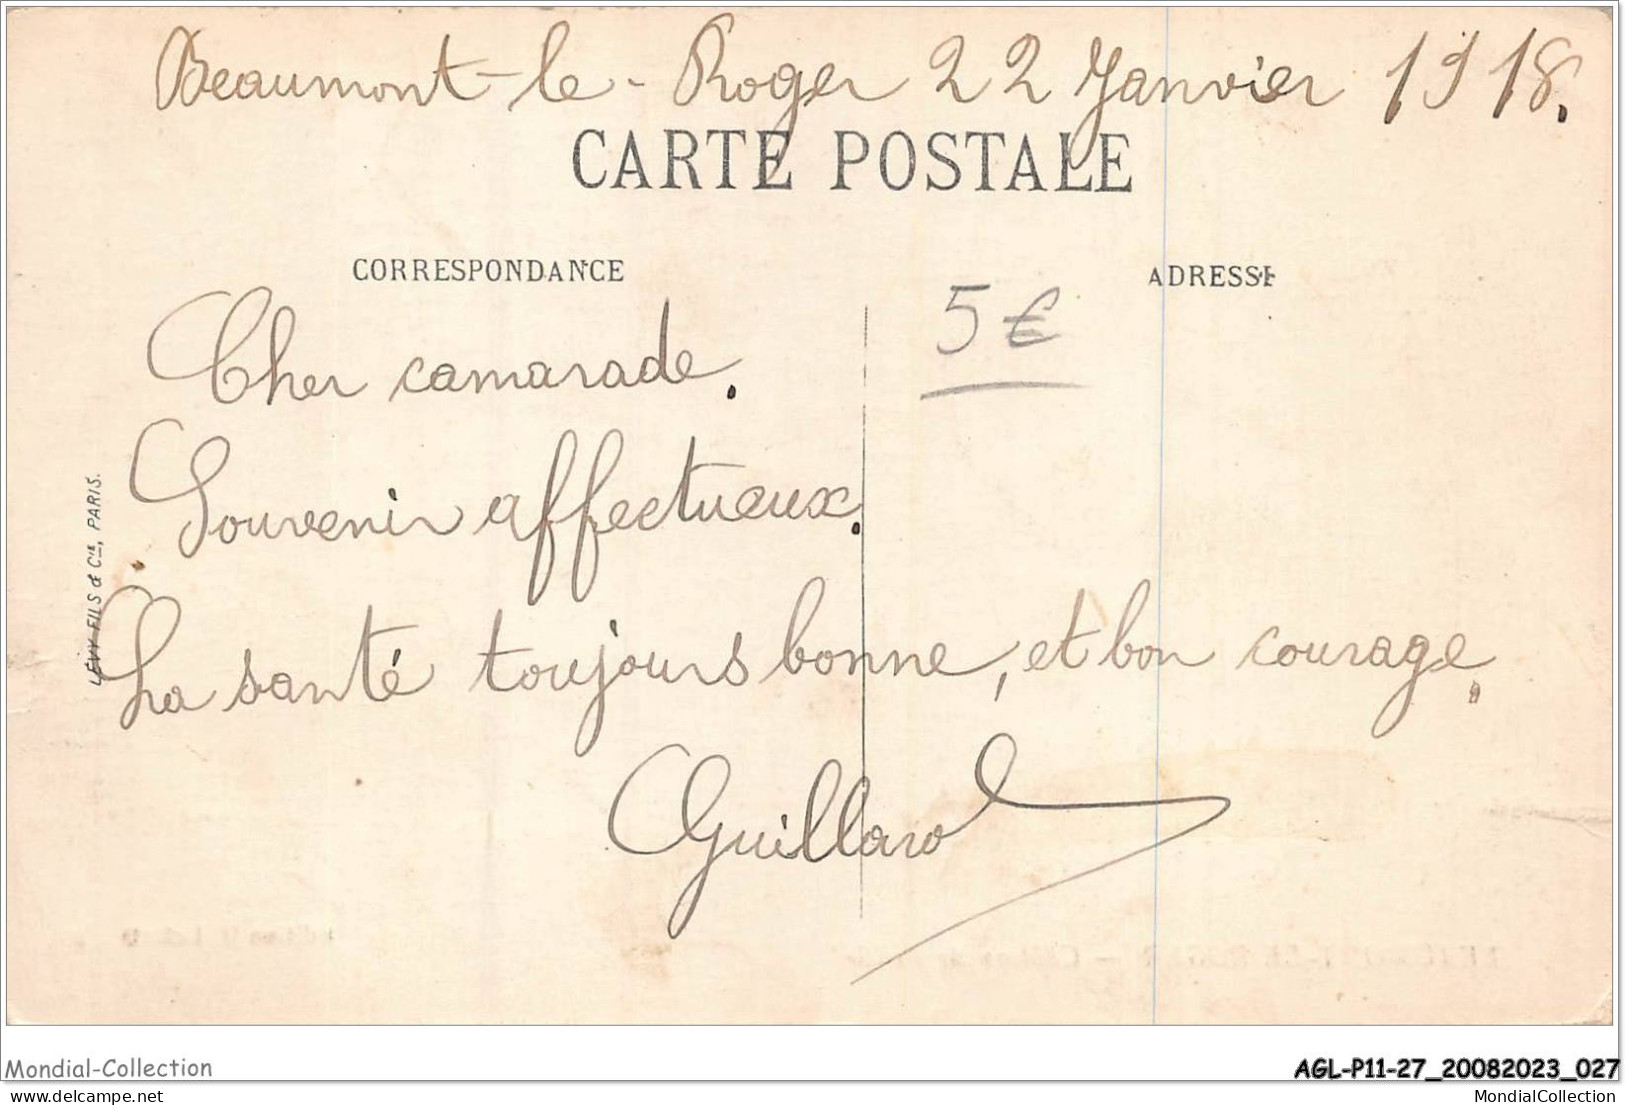 Beaumont-le-Roger 22 Janvier 1918.
CARTE POSTALE
CORRESPONDANCE
ADRESSE
5 €
Cher camarade.
Souvenir affectueux.
La santé toujours bonne, et bon courage.
Guillard
LÉVY FILS & Cie, PARIS.
Mondial-Collection
AGL-P11-27_20082023_027
mondialcollection.delcampe.net
MondialCollection